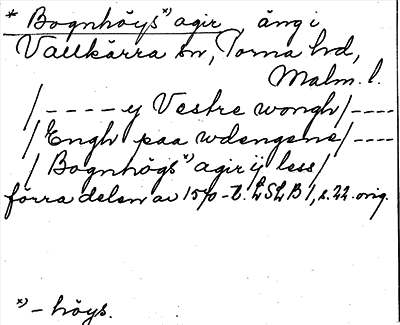 * Bognhöys x) agir, äng i
Vallkärra sn, Torna hd,
Malm. l.
/ - - - - y Vestre wongh / - - - -
/ Engh paa wdengene / - - - -
/ Bognhögs x) agir ij less /
förra delen av 1570-t. LSLB 1, s. 22. orig.
x) - höys.